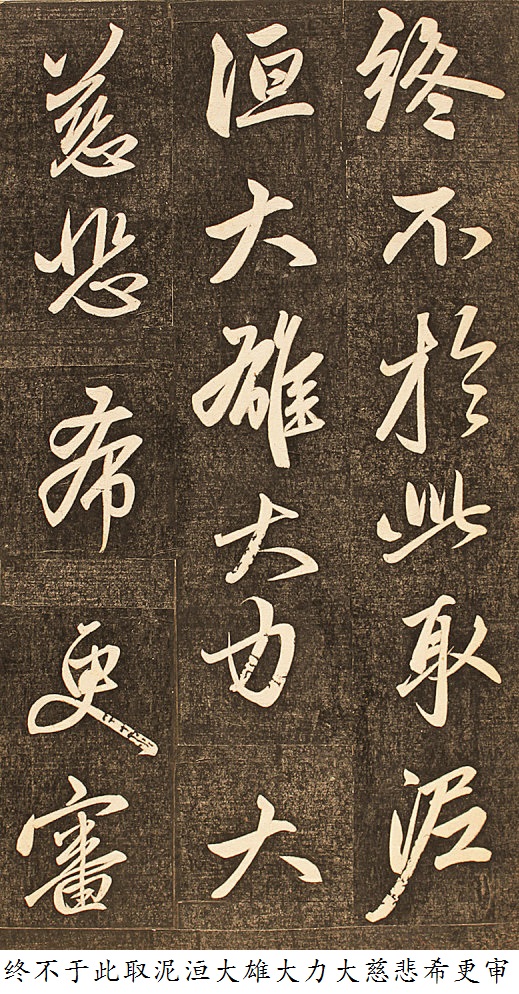 终不於此取泥
洹大雄大力大
慈悲希更審
终不于此取泥洹大雄大力大慈悲希更审